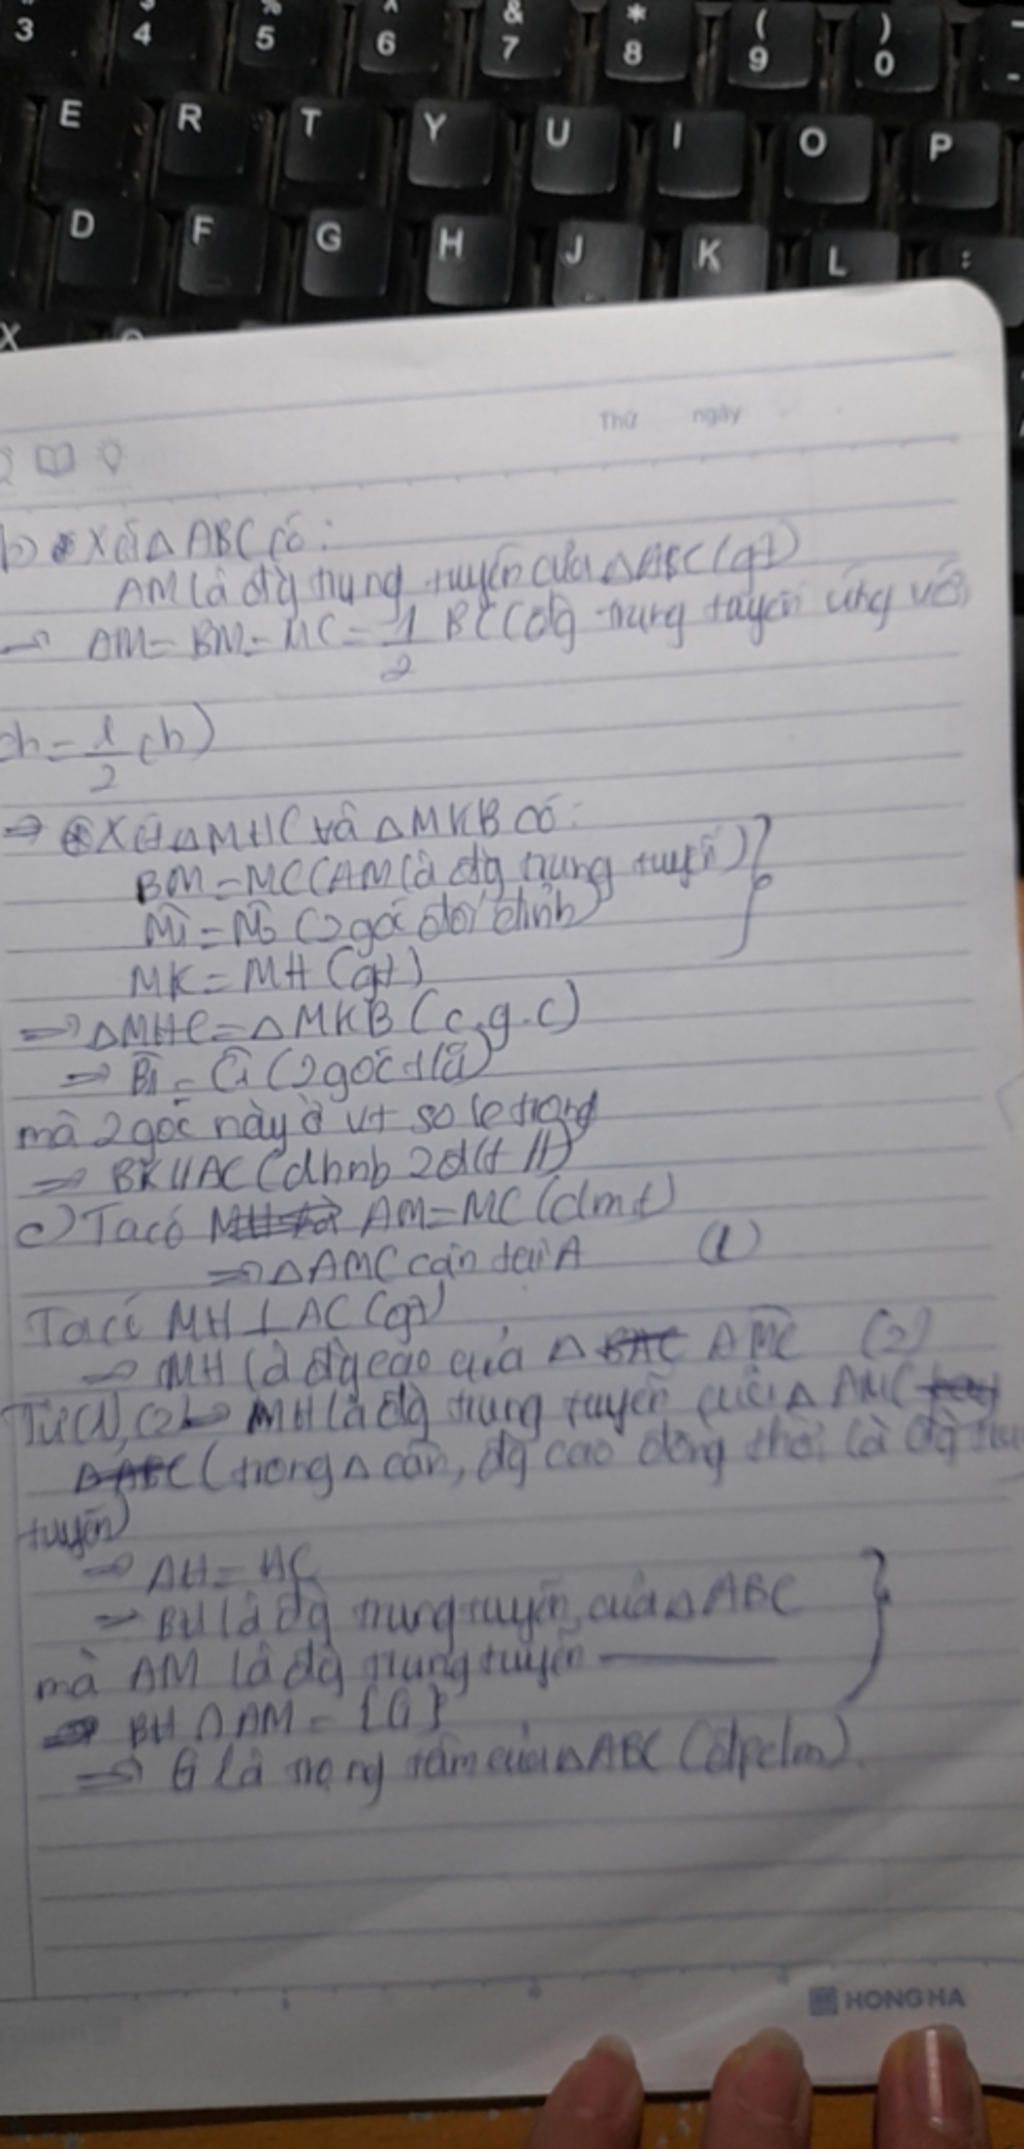 3 $ 4 % 5 ^ 6 & 7 * 8 ( 9 ) 0 -
E R T Y U I O P
D F G H J K L :
X
Thứ ngày
b) Xét △ABC có:
AM là đg trung tuyến của △ABC (gt)
→ AM = BM = MC = 1/2 BC (đg trung tuyến ứng với
ch = 1/2 ch)
⇒ Xét △MHC và △MKB có:
BM = MC (AM là đg trung tuyến)
M̂1 = M̂ (2 góc đối đỉnh)
MK = MH (gt)
⇒ △MHC = △MKB (c.g.c)
⇒ B̂1 = Ĉ1 (2 góc t/ư)
mà 2 góc này ở vt so le trong
⇒ BK // AC (dhnb 2 đ/t //)
c) Ta có AM = MC (cmt)
⇒ △AMC cân tại A (1)
Ta có MH ⊥ AC (gt)
⇒ MH là đg cao của △ AMC (2)
Từ (1), (2) ⇒ MH là đg trung tuyến của △ AMC
△ABC (trong △ cân, đg cao đồng thời là đg
tuyến)
⇒ AH = HC
⇒ BH là đg trung tuyến của △ABC
mà AM là đg trung tuyến ———
⇒ BH ∩ AM = {G}
⇒ G là trọng tâm của △ABC (đpcm)
HONG HA